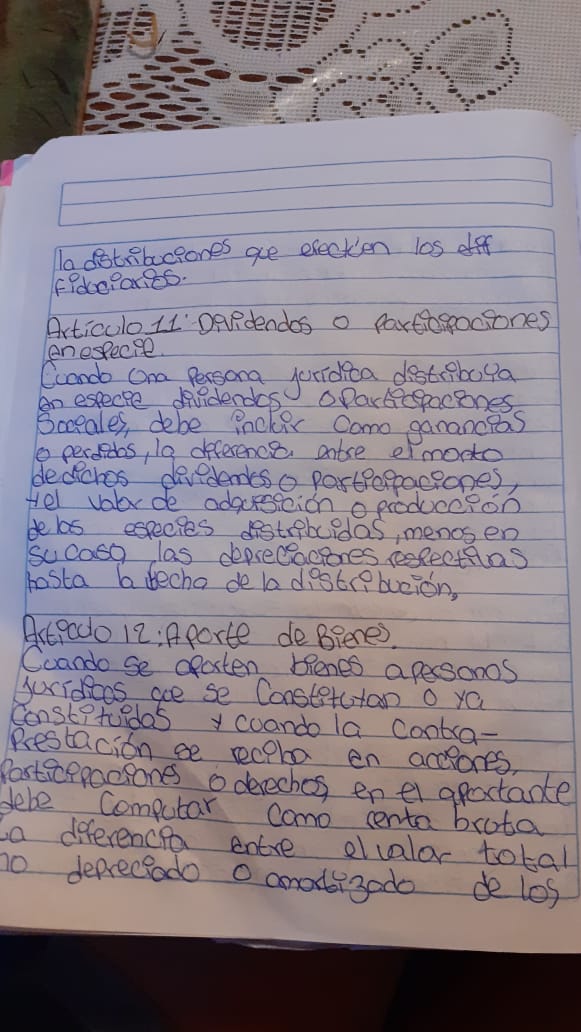 la distribuciones que efectúen los diff
fiduciarios.
Artículo 11: Dividendos o participaciones
en especie.
Cuando Una Persona jurídica distribuya
en especie dividendos o participaciones
Sociales, debe incluir Como ganancias
o perdidas, la diferencia entre el monto
de dichos dividendos o participaciones,
y el valor de adquisición o producción
de las especies distribuidas, menos en
su caso, las depreciaciones respectivas
hasta la fecha de la distribución,
Artículo 12: Aporte de Bienes.
Cuando se aporten bienes a personas
jurídicas que se Constituyan o ya
Constituidas y cuando la Contra-
Prestación se reciba en acciones,
Participaciones o derechos, en el aportante
debe Computar Como renta bruta
La diferencia entre el valor total
no depreciado o amortizado de los